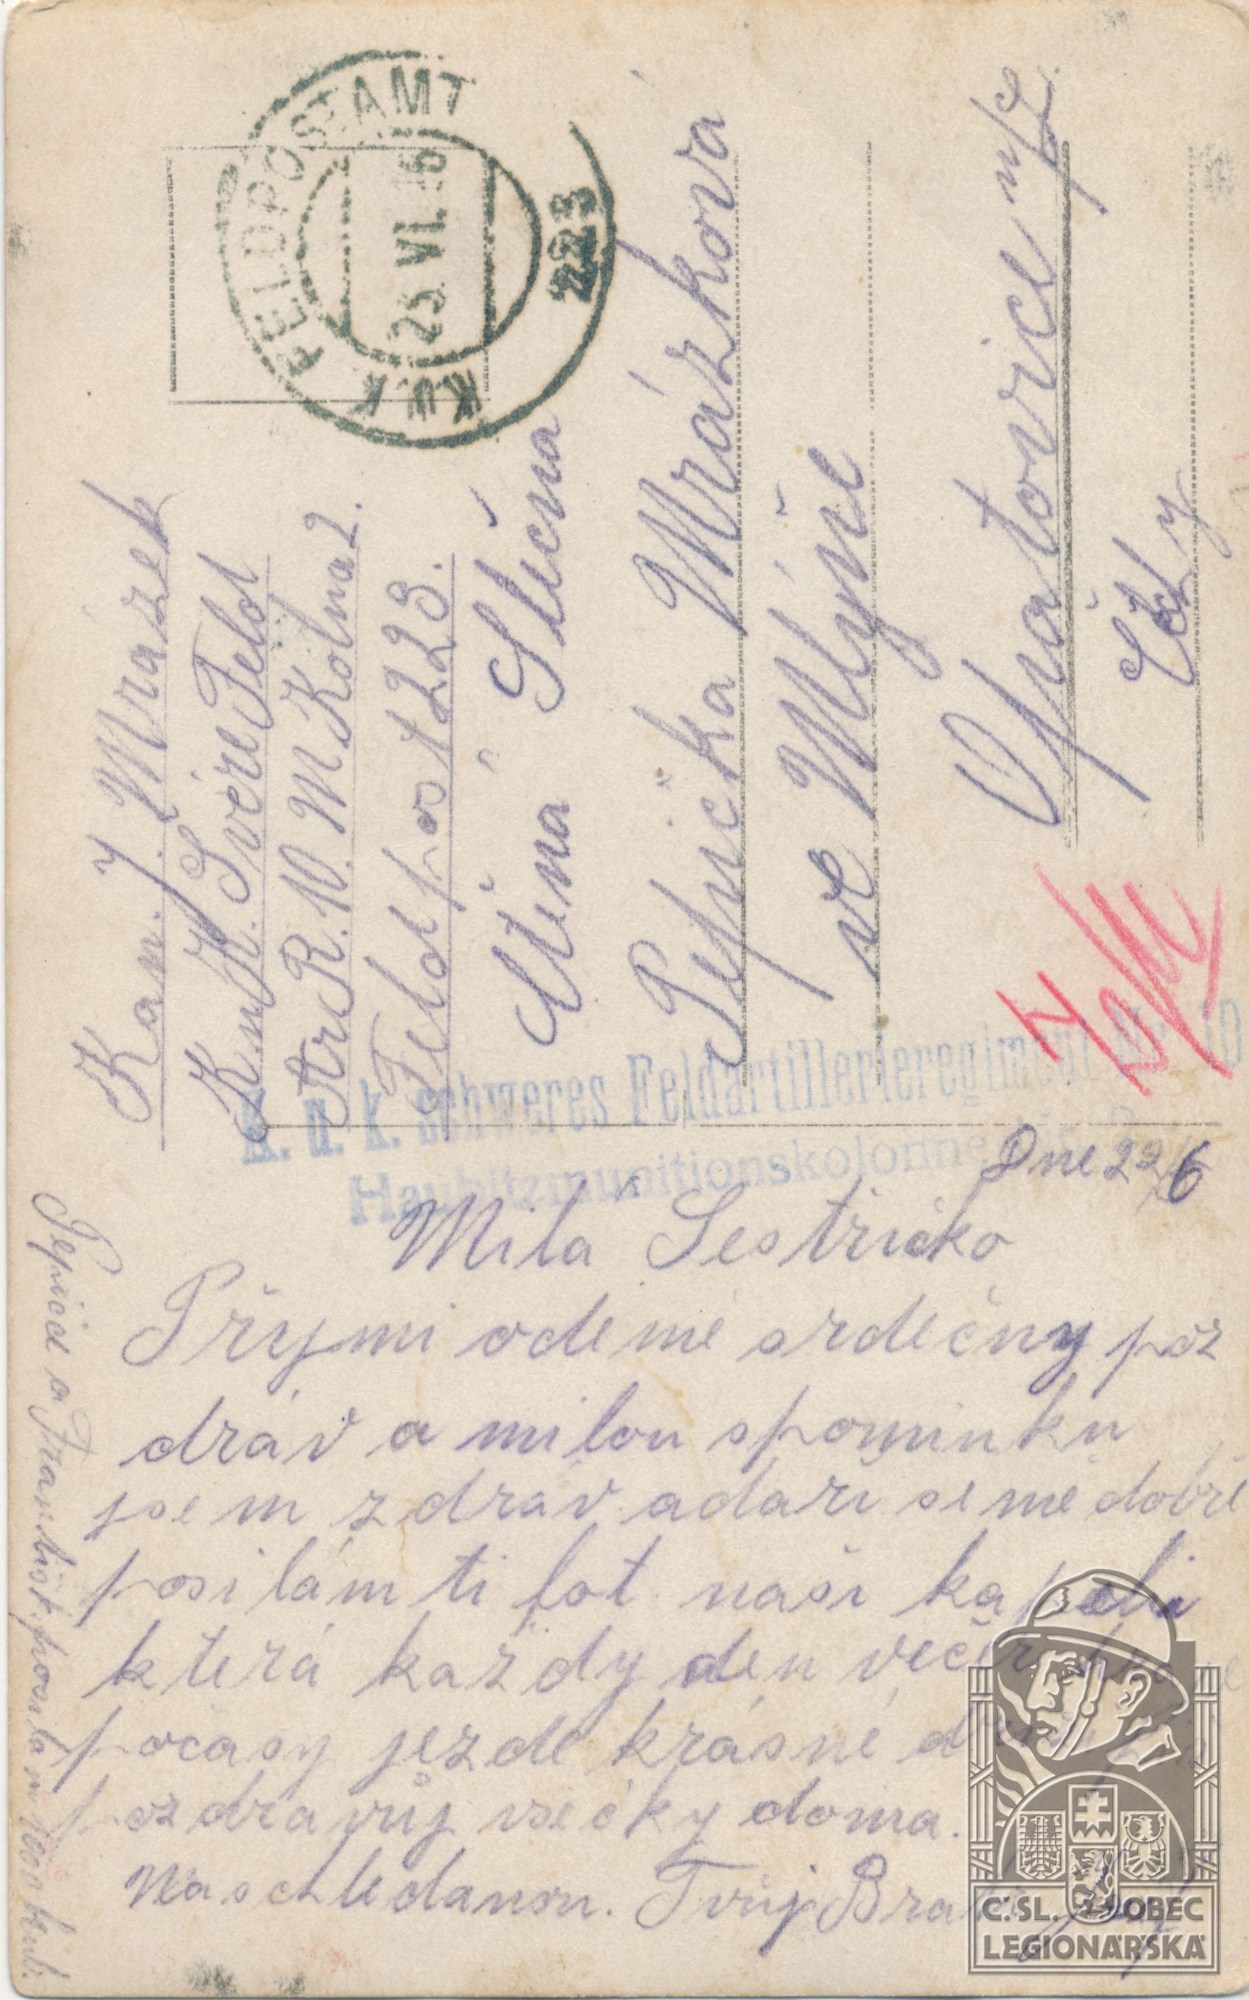 K.u.K. FELDPOSTAMT 223
23. VI. 16
Kan. J. Mrázek
K u K. Švére Feld
Ar R. 10. M. Kolna 2.
Feldpost 223.
Slečna
Pepička Mrázkova
ve Mlýně
Opatovice
Čechy
K. u. k. schweres Feldartillerieregiment Nr. 10
Haubitzmunitionskolonne
Dne 22/6
Milá Sestřičko
Přijmi odeme srdečny poz
drav a milou spominku
jsem zdráv a daři se mě dobře
posilám ti fot. naši kapeli
která každy den večer
počasy jezde krásné
pozdravuj všecky doma.
Naschledanou. Tvůj Bratr
Pepick a Frant. posilám 1000 hub.
ČSL. OBEC
LEGIONÁŘSKÁ